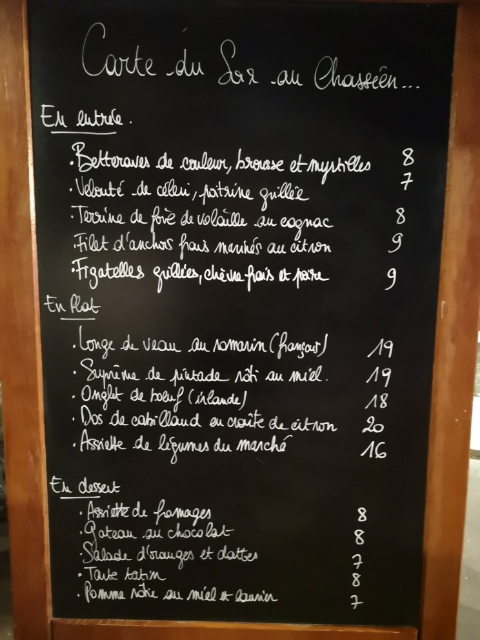 Carte du Soir au Chasséen...
En entrée.
.Betteraves de couleur, brousse et myrtilles 8
.Velouté de céleri, poitrine grillée 7
.Terrine de foie de volaille au cognac 8
.Filet d'anchois frais marinés au citron 9
.Figatelles grillées, chèvre frais et poire 9
En plat
.Longe de veau au romarin (français) 19
.Suprême de pintade rôti au miel. 19
.Onglet de bœuf (irlande) 18
.Dos de cabillaud en croûte de citron 20
.Assiette de légumes du marché 16
En dessert
.Assiette de fromages 8
.Gateau au chocolat 8
.Salade d'oranges et dattes 7
.Tarte tatin 8
.Pomme rôtie au miel et laurier 7